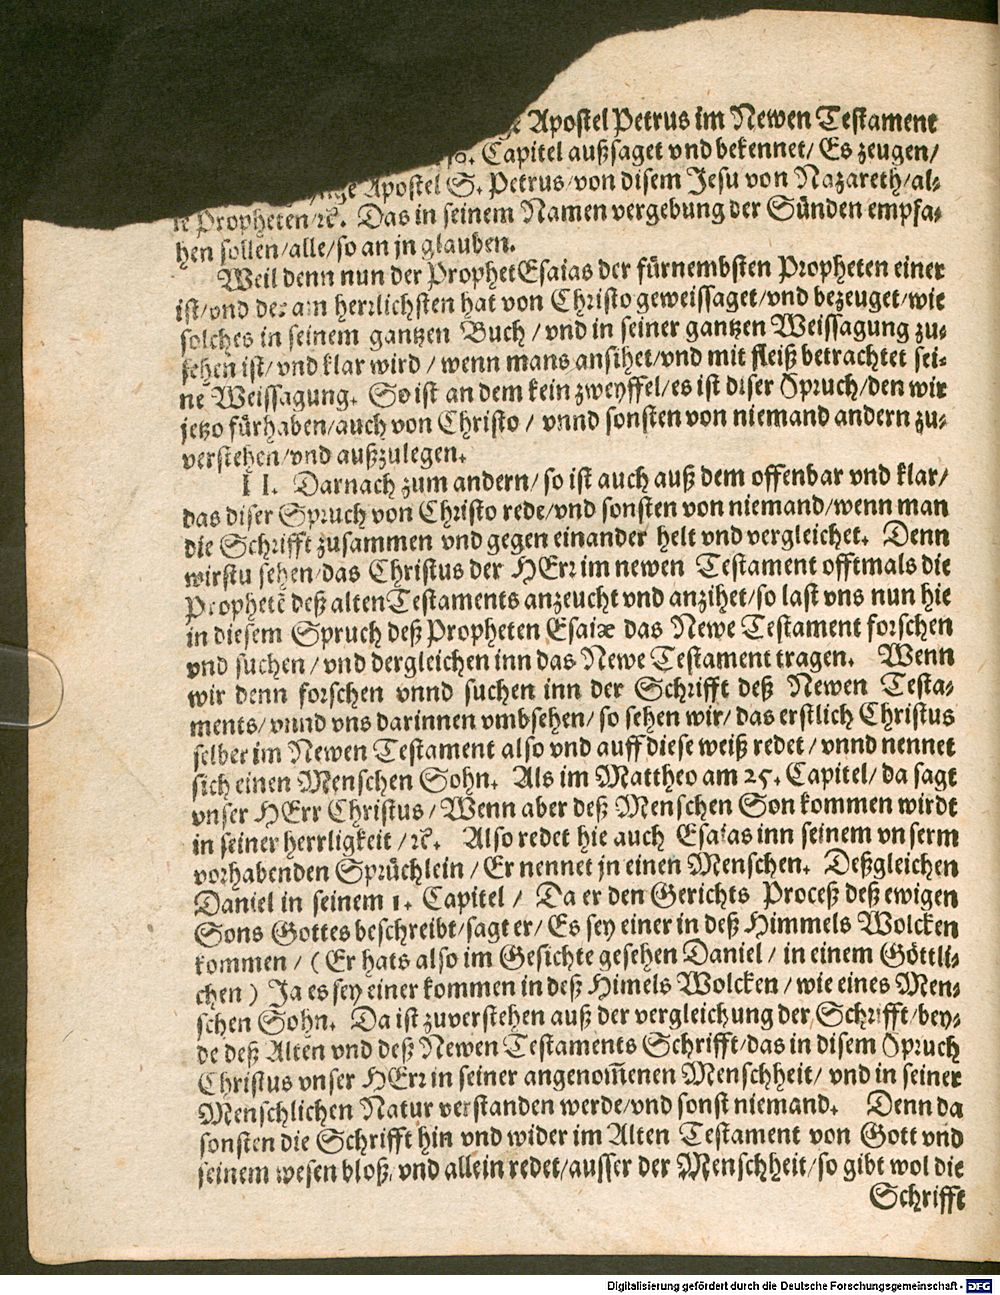 Apostel Petrus im Newen Testament
10. Capitel außsaget vnd bekennet/ Es zeugen/
Apostel S. Petrus/von disem Jesu von Nazareth/al-
le Propheten/ꝛc. Das in seinem Namen vergebung der Sünden empfa-
hen sollen/alle/so an jn glauben.
Weil denn nun der Prophet Esaias der fürnembsten Propheten einer
ist/vnd der am herrlichsten hat von Christo geweissaget/vnd bezeuget/wie
solches in seinem gantzen Buch / vnd in seiner gantzen Weissagung zu-
sehen ist/ vnd klar wird / wenn mans ansihet/vnd mit fleiß betrachtet sei-
ne Weissagung. So ist an dem kein zweyffel/es ist diser Spruch/den wir
jetzo fürhaben/auch von Christo / vnnd sonsten von niemand andern zu-
verstehen/vnd außzulegen.
II. Darnach zum andern/ so ist auch auß dem offenbar vnd klar/
das diser Spruch von Christo rede/vnd sonsten von niemand/wenn man
die Schrifft zusammen vnd gegen einander helt vnd vergleichet. Denn
wirstu sehen/das Christus der HErr im newen Testament offtmals die
Prophetē deß alten Testaments anzeucht vnd anzihet/so last vns nun hie
in diesem Spruch deß Propheten Esaiæ das Newe Testament forschen
vnd suchen / vnd dergleichen inn das Newe Testament tragen. Wenn
wir denn forschen vnnd suchen inn der Schrifft deß Newen Testa-
ments/ vnnd vns darinnen vmbsehen/ so sehen wir/ das erstlich Christus
selber im Newen Testament also vnd auff diese weiß redet / vnnd nennet
sich einen Menschen Sohn. Als im Mattheo am 25. Capitel/ da sagt
vnser HErr Christus / Wenn aber deß Menschen Son kommen wirdt
in seiner herrligkeit /ꝛc. Also redet hie auch Esaias inn seinem vnserm
vorhabenden Sprüchlein / Er nennet jn einen Menschen. Deßgleichen
Daniel in seinem 1. Capitel / Da er den Gerichts Proceß deß ewigen
Sons Gottes beschreibt/sagt er/ Es sey einer in deß Himmels Wolcken
kommen / (Er hats also im Gesichte gesehen Daniel / in einem Göttli-
chen) Ja es sey einer kommen in deß Himels Wolcken / wie eines Men-
schen Sohn. Da ist zuverstehen auß der vergleichung der Schrifft/bey-
de deß Alten vnd deß Newen Testaments Schrifft/das in disem Spruch
Christus vnser HErr in seiner angenom̄enen Menschheit/ vnd in seiner
Menschlichen Natur verstanden werde/vnd sonst niemand. Denn da
sonsten die Schrifft hin vnd wider im Alten Testament von Gott vnd
seinem wesen bloß/ vnd allein redet/ausser der Menschheit/so gibt wol die
Schrifft
Digitalisierung gefördert durch die Deutsche Forschungsgemeinschaft - DFG